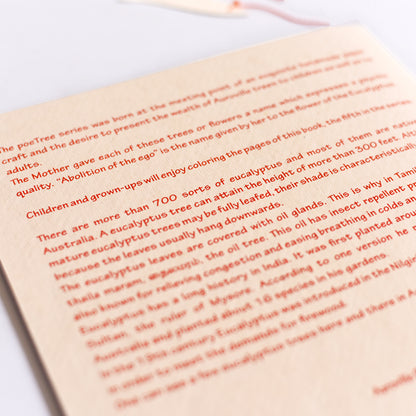 The poeTree series was born at the meeting point of an
craft and the desire to present the wealth of Auroville trees to children as well as to
adults.
The Mother gave each of these trees or flowers a name which expresses a
quality. "Abolition of the ego" is the name given by her to the flower of the Eucalyptus
Children and grown-ups will enjoy coloring the pages of this book, the fifth in the
There are more than 700 sorts of eucalyptus and most of them are
Australia. A eucalyptus tree can attain the height of more than 300 feet.
mature eucalyptus trees may be fully leafed, their shade is characteristically
because the leaves usually hang downwards.
The eucalyptus leaves are covered with oil glands. This is why in
thaila maram, the oil tree. This oil has insect repellent
also known for relieving congestion and easing breathing in colds an
Eucalyptus has a long history in India. It was first planted around
Sultan, the ruler of Mysore. According to one version he
Australia and planted about 16 species in his gardens.
In the 19th century Eucalyptus was introduced in the Nilgi
in order to meet the demands for firewood.
One can see a few eucalyptus trees here and there in A